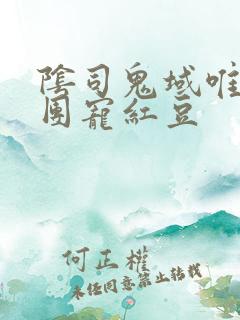 陰司鬼域唯
團寵紅豆
何正權
未经同意禁止转载